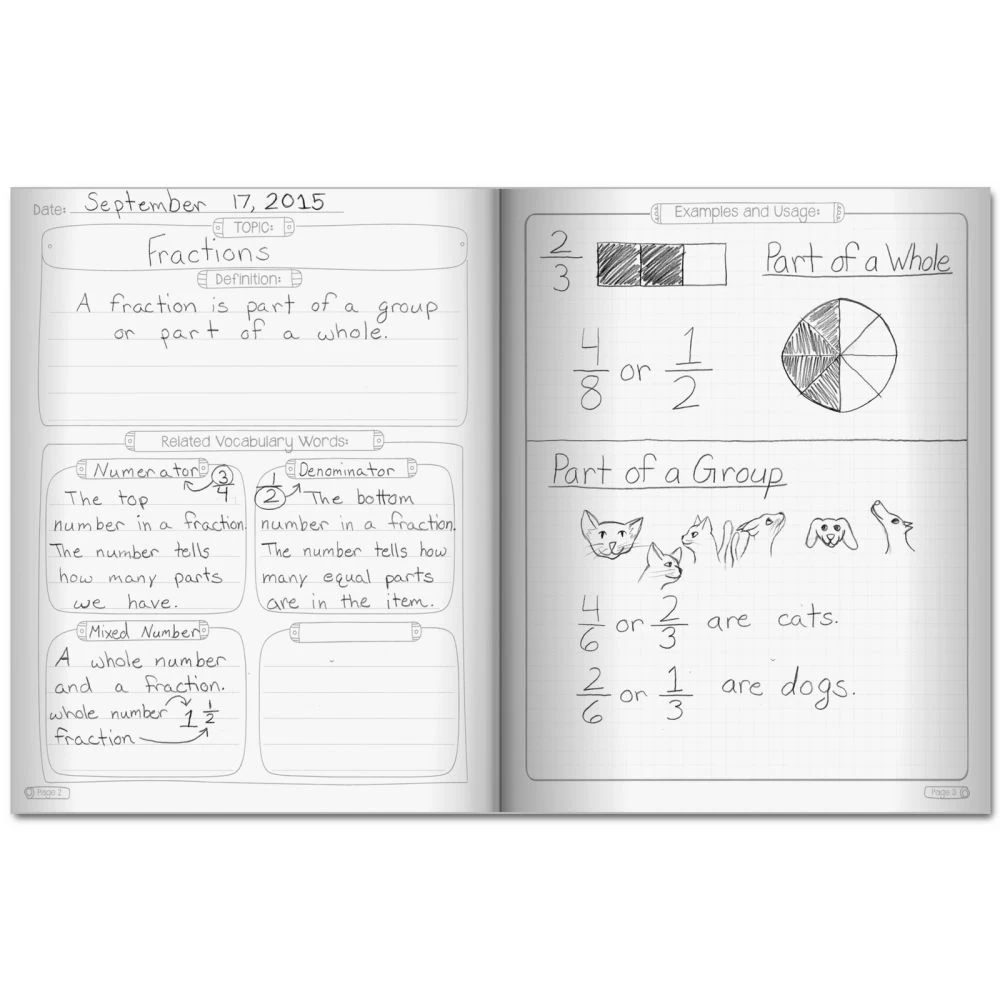 Date: September 17, 2015
TOPIC:
Fractions
Definition:
A fraction is part of a group
or part of a whole.
Related Vocabulary Words:
Numerator
3/4
The top
number in a fraction.
The number tells
how many parts
we have.
Denominator
1/2
The bottom
number in a fraction.
The number tells how
many equal parts
are in the item.
Mixed Number
A whole number
and a fraction.
whole number 1 1/2
fraction
Page 2
Examples and Usage:
2/3
Part of a Whole
4/8 or 1/2
Part of a Group
4/6 or 2/3 are cats.
2/6 or 1/3 are dogs.
Page 3